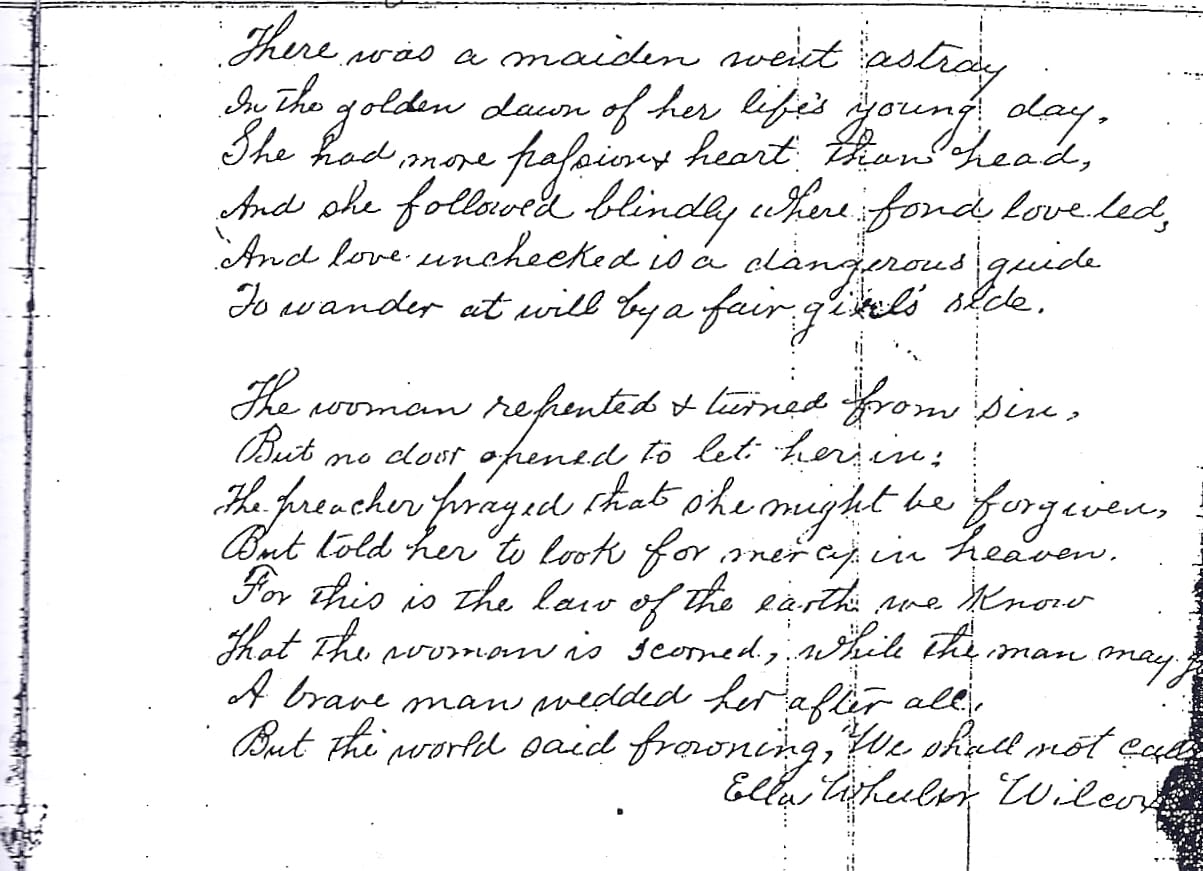 There was a maiden went astray
In the golden dawn of her life's young day.
She had more passion & heart than head,
And she followed blindly where fond love led,
And love unchecked is a dangerous guide
To wander at will by a fair girl's side.
The woman repented & turned from sin,
But no door opened to let her in:
The preacher prayed that she might be forgiven,
But told her to look for mercy in heaven.
For this is the law of the earth we know
That the woman is scorned, while the man may
A brave man wedded her after all,
But the world said frowning, "We shall not call
Ella Wheeler Wilcox